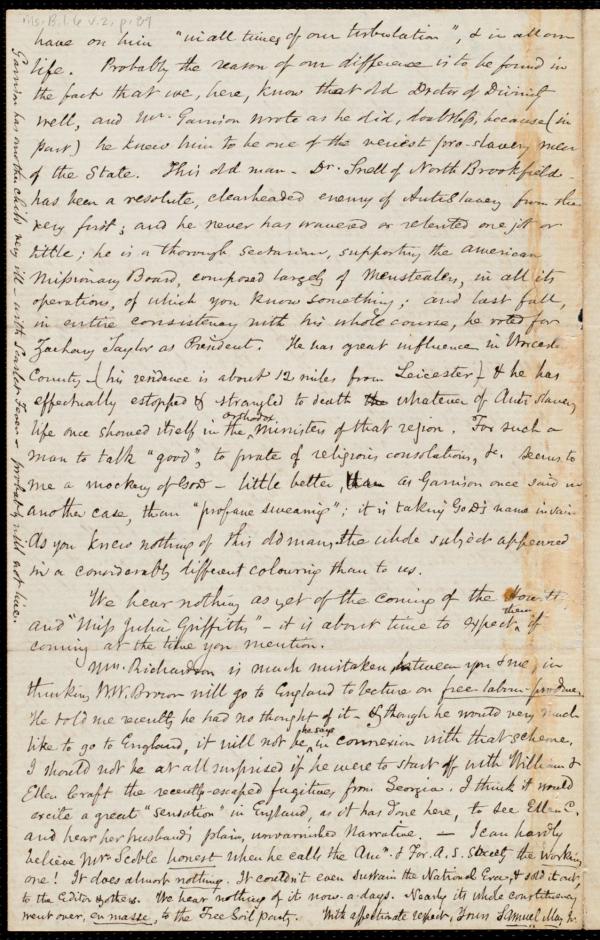 Ms. B.1.6 v.2, p.89
have on him "in all times of our tribulation", & in all our
life. Probably the reason of our difference is to be found in
the fact that we, here, know that old Doctor of Divinity
well, and Mr. Garrison wrote as he did, doubtless, because (in
part) he knew him to be one of the veriest pro-slavery men
of the State. This old man - Dr. Snell of North Brookfield -
has been a resolute, clearheaded enemy of AntiSlavery from the
very first; and he never has wavered or relented one jot or
tittle; he is a thorough sectarian, supporting the American
Missionary Board, composed largely of Menstealers, in all its
operations, of which you know something; and last fall,
in entire consistency with his whole course, he voted for
Zachary Taylor as President. He has great influence in Worcester
County - (his residence is about 12 miles from Leicester) & he has
effectually estopped & strangled to death the whatever of Anti Slavery
life once showed itself in the orthodox Ministers of that region. For such a
man to talk "good", to prate of religious consolations, &c. seems to
me a mockery of God - little better, than as Garrison once said in
another case, than "profane swearing"; it is taking God's name in vain
As you knew nothing of this old man, the whole subject appeared
in a considerably different colouring than to us.
We hear nothing as yet of the coming of the
and "Miss Julia Griffiths" - it is about time to expect them if
coming at the time you mention.
Mrs. Richardson is much mistaken, between you & me, in
thinking W.W. Brown will go to England to lecture on free-labour-produce.
He told me recently he had no thought of it - & though he would very much
like to go to England, it will not be, he says, in connexion with that scheme.
I should not be at all surprised if he were to start off with William &
Ellen Craft the recently-escaped fugitives from Georgia. I think it would
excite a great "sensation" in England, as it has done here, to see Ellen C.
and hear her husband's plain, unvarnished Narrative. - I can hardly
believe Mr. Scoble honest when he calls the Amn. & For. A. S. Society the working
one! It does almost nothing. It couldn't even sustain the National Era, & sold it out,
to the Editor & others. We hear nothing of it now-a-days. Nearly its whole constituency
went over, en masse, to the Free Soil party. With affectionate respect, Yours Samuel May Jr.
Garrison has another child very ill - with Scarlet Fever - probably will not live.